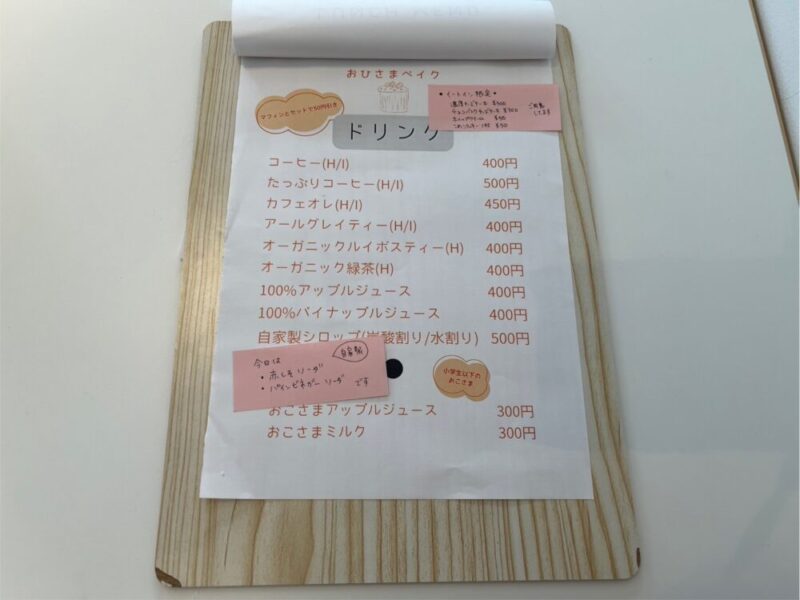 おひさまベイク
マフィンとセットで50円引き
★イートイン限定★
ご用意
します
ドリンク
コーヒー(H/I) 400円
たっぷりコーヒー(H/I) 500円
カフェオレ(H/I) 450円
アールグレイティー(H/I) 400円
オーガニックルイボスティー(H) 400円
オーガニック緑茶(H) 400円
100%アップルジュース 400円
100%パイナップルジュース 400円
自家製シロップ(炭酸割り/水割り) 500円
今日は
自家製
・赤しそソーダ
・パインビネガーソーダ です
小学生以下の
おこさま
おこさまアップルジュース 300円
おこさまミルク 300円